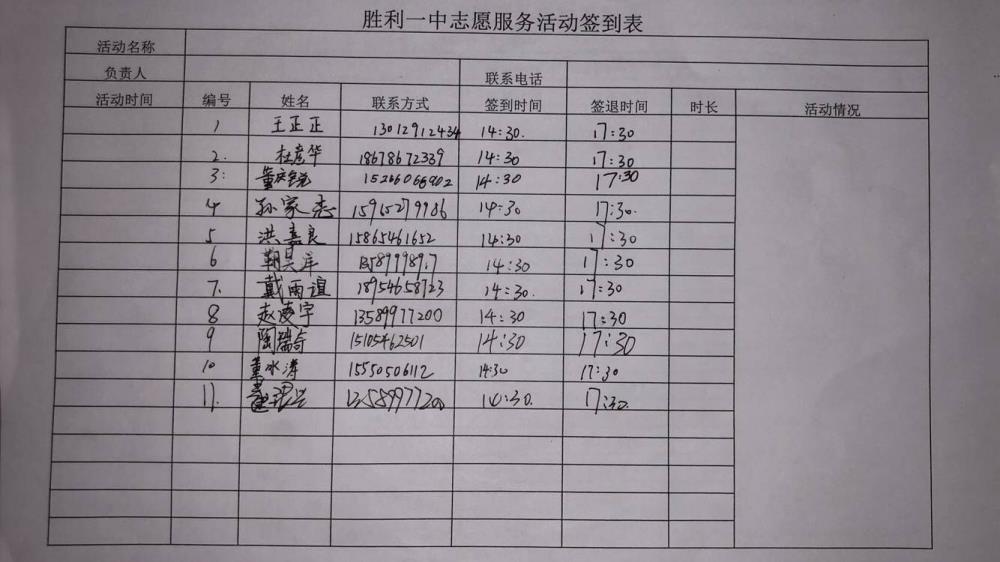 胜利一中志愿服务活动签到表
活动名称
负责人 联系电话
活动时间 编号 姓名 联系方式 签到时间 签退时间 时长 活动情况
1 王正正 13012912434 14:30. 17:30
2. 杜彦华 18678672339 14:30 17:30
3: 14:30 17:30
4 孙家志 14:30 17:30.
5 洪嘉良 15865461652 14:30 17:30
6 14:30 17:30
7. 戴雨谊 18954658723 14:30. 17:30
8 赵凌宇 13589977200 14:30 17:30
9 陶瑞奇 15105462501 14:30 17:30
10 董冰涛 15550506112 14:30 17:30
11. 13589977200 14:30. 17:30.